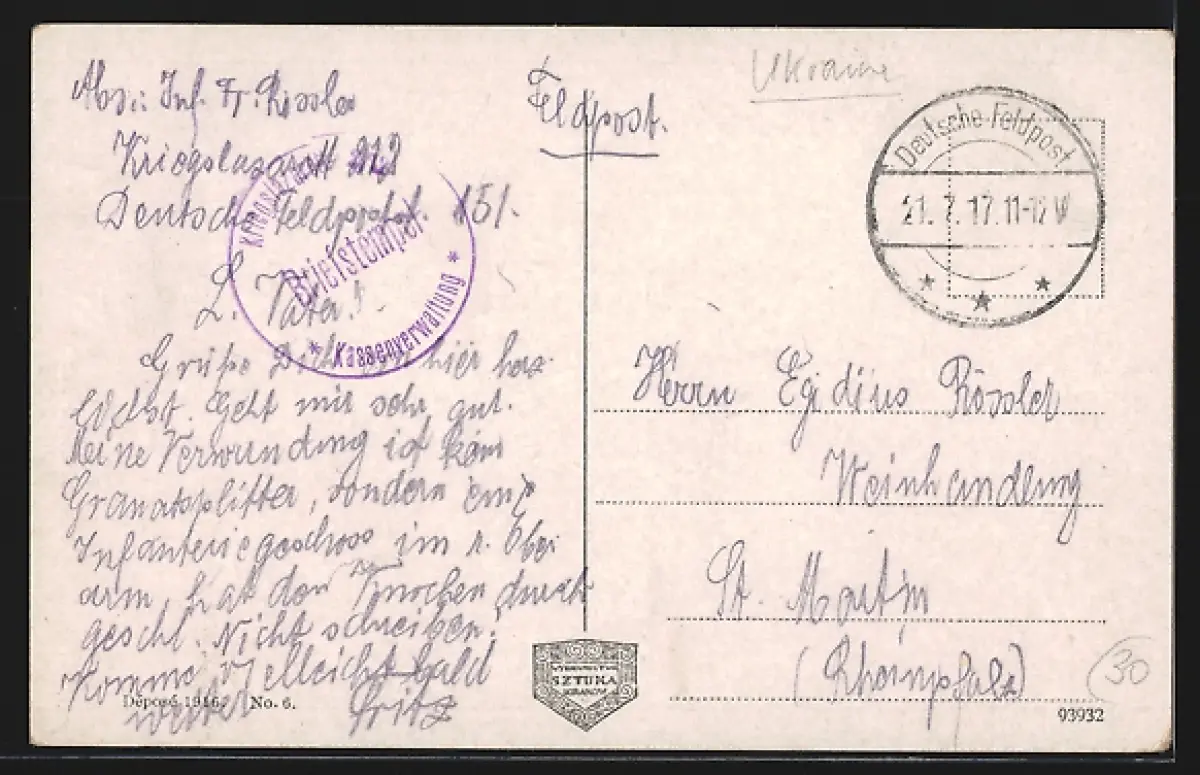 Abs.: Inf. Fr. Rössler
Kriegslazarett 212
Deutsche Feldpostst. 151.
L. Vater!
Grüße Dich hier herz
lichst. Geht mir sehr gut.
Meine Verwundung ist kein
Granatsplitter, sondern ein
Infanteriegeschoss im r. Ober
arm, hat den Knochen durch
geschl. Nicht schreiben!
Komme vielleicht bald
weiter Fritz
Kriegslazarett
Briefstempel
* Kassenverwaltung *
Feldpost.
Ukraine
Deutsche Feldpost
21. 7. 17. 11-12 V
Herrn Egidius Rössler
Weinhandlung
St. Martin
(Rheinpfalz)
30
Déposé 1916. No. 6.
SZTUKA
93932